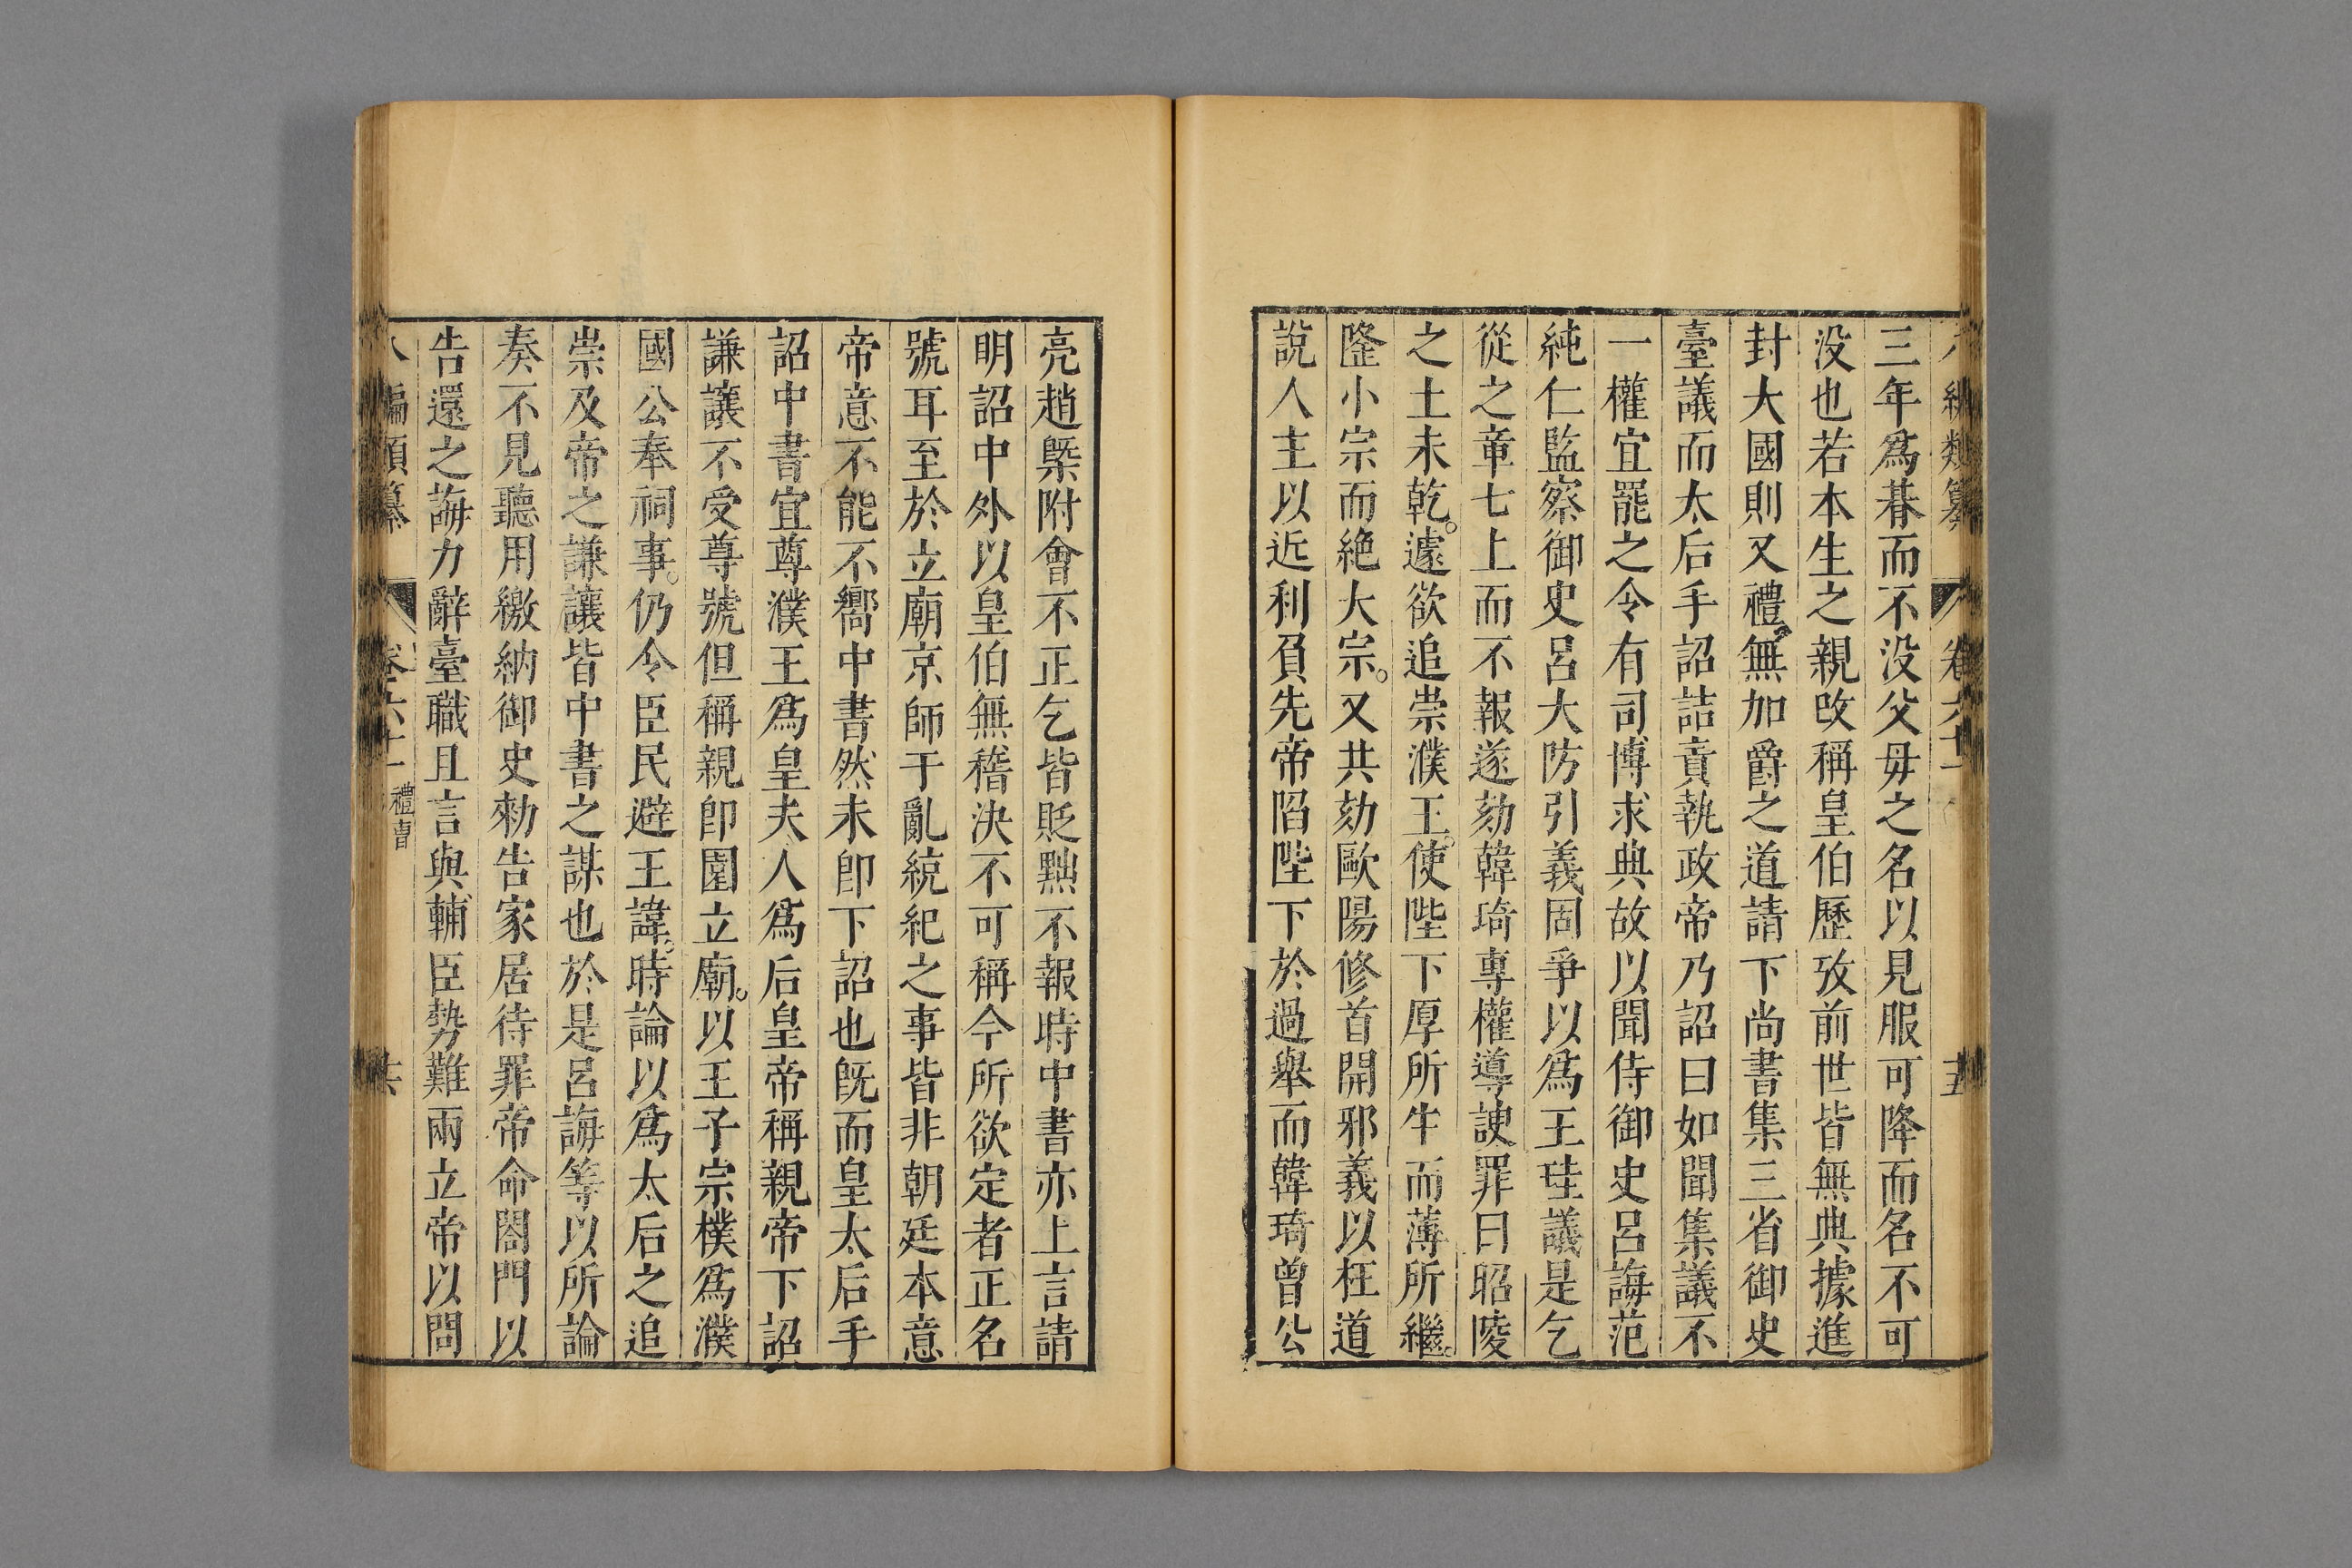 三年爲朞而不没父母之名以見服可降而名不可
没也若本生之親改稱皇伯歷攷前世皆無典據進
封大國則又禮無加爵之道請下尚書集三省御史
臺議而太后手詔詰責執政帝乃詔曰如聞集議不
一權宜罷之令有司博求典故以聞侍御史呂誨范
純仁監察御史呂大防引義固爭以爲王珪議是乞
從之章七上而不報遂劾韓琦專權導諛罪曰昭陵
之土未乾。遽欲追崇濮王。使陛下厚所生而薄所繼。
隆小宗而絶大宗。又共劾歐陽修首開邪義以枉道
說人主以近利負先帝陷陛下於過舉而韓琦曾公
亮趙槩附會不正乞皆貶黜不報時中書亦上言請
明詔中外以皇伯無稽決不可稱今所欲定者正名
號耳至於立廟京師干亂統紀之事皆非朝廷本意
帝意不能不嚮中書然未卽下詔也旣而皇太后手
詔中書宜尊濮王爲皇夫人爲后皇帝稱親帝下詔
謙讓不受尊號但稱親卽園立廟。以王子宗樸爲濮
國公奉祠事。仍令臣民避王諱。時論以爲太后之追
崇及帝之謙讓皆中書之謀也於是呂誨等以所論
奏不見聽用繳納御史勑告家居待罪帝命閤門以
告還之誨力辭臺職且言與輔臣勢難兩立帝以問
八編類纂 卷六十 禮曹